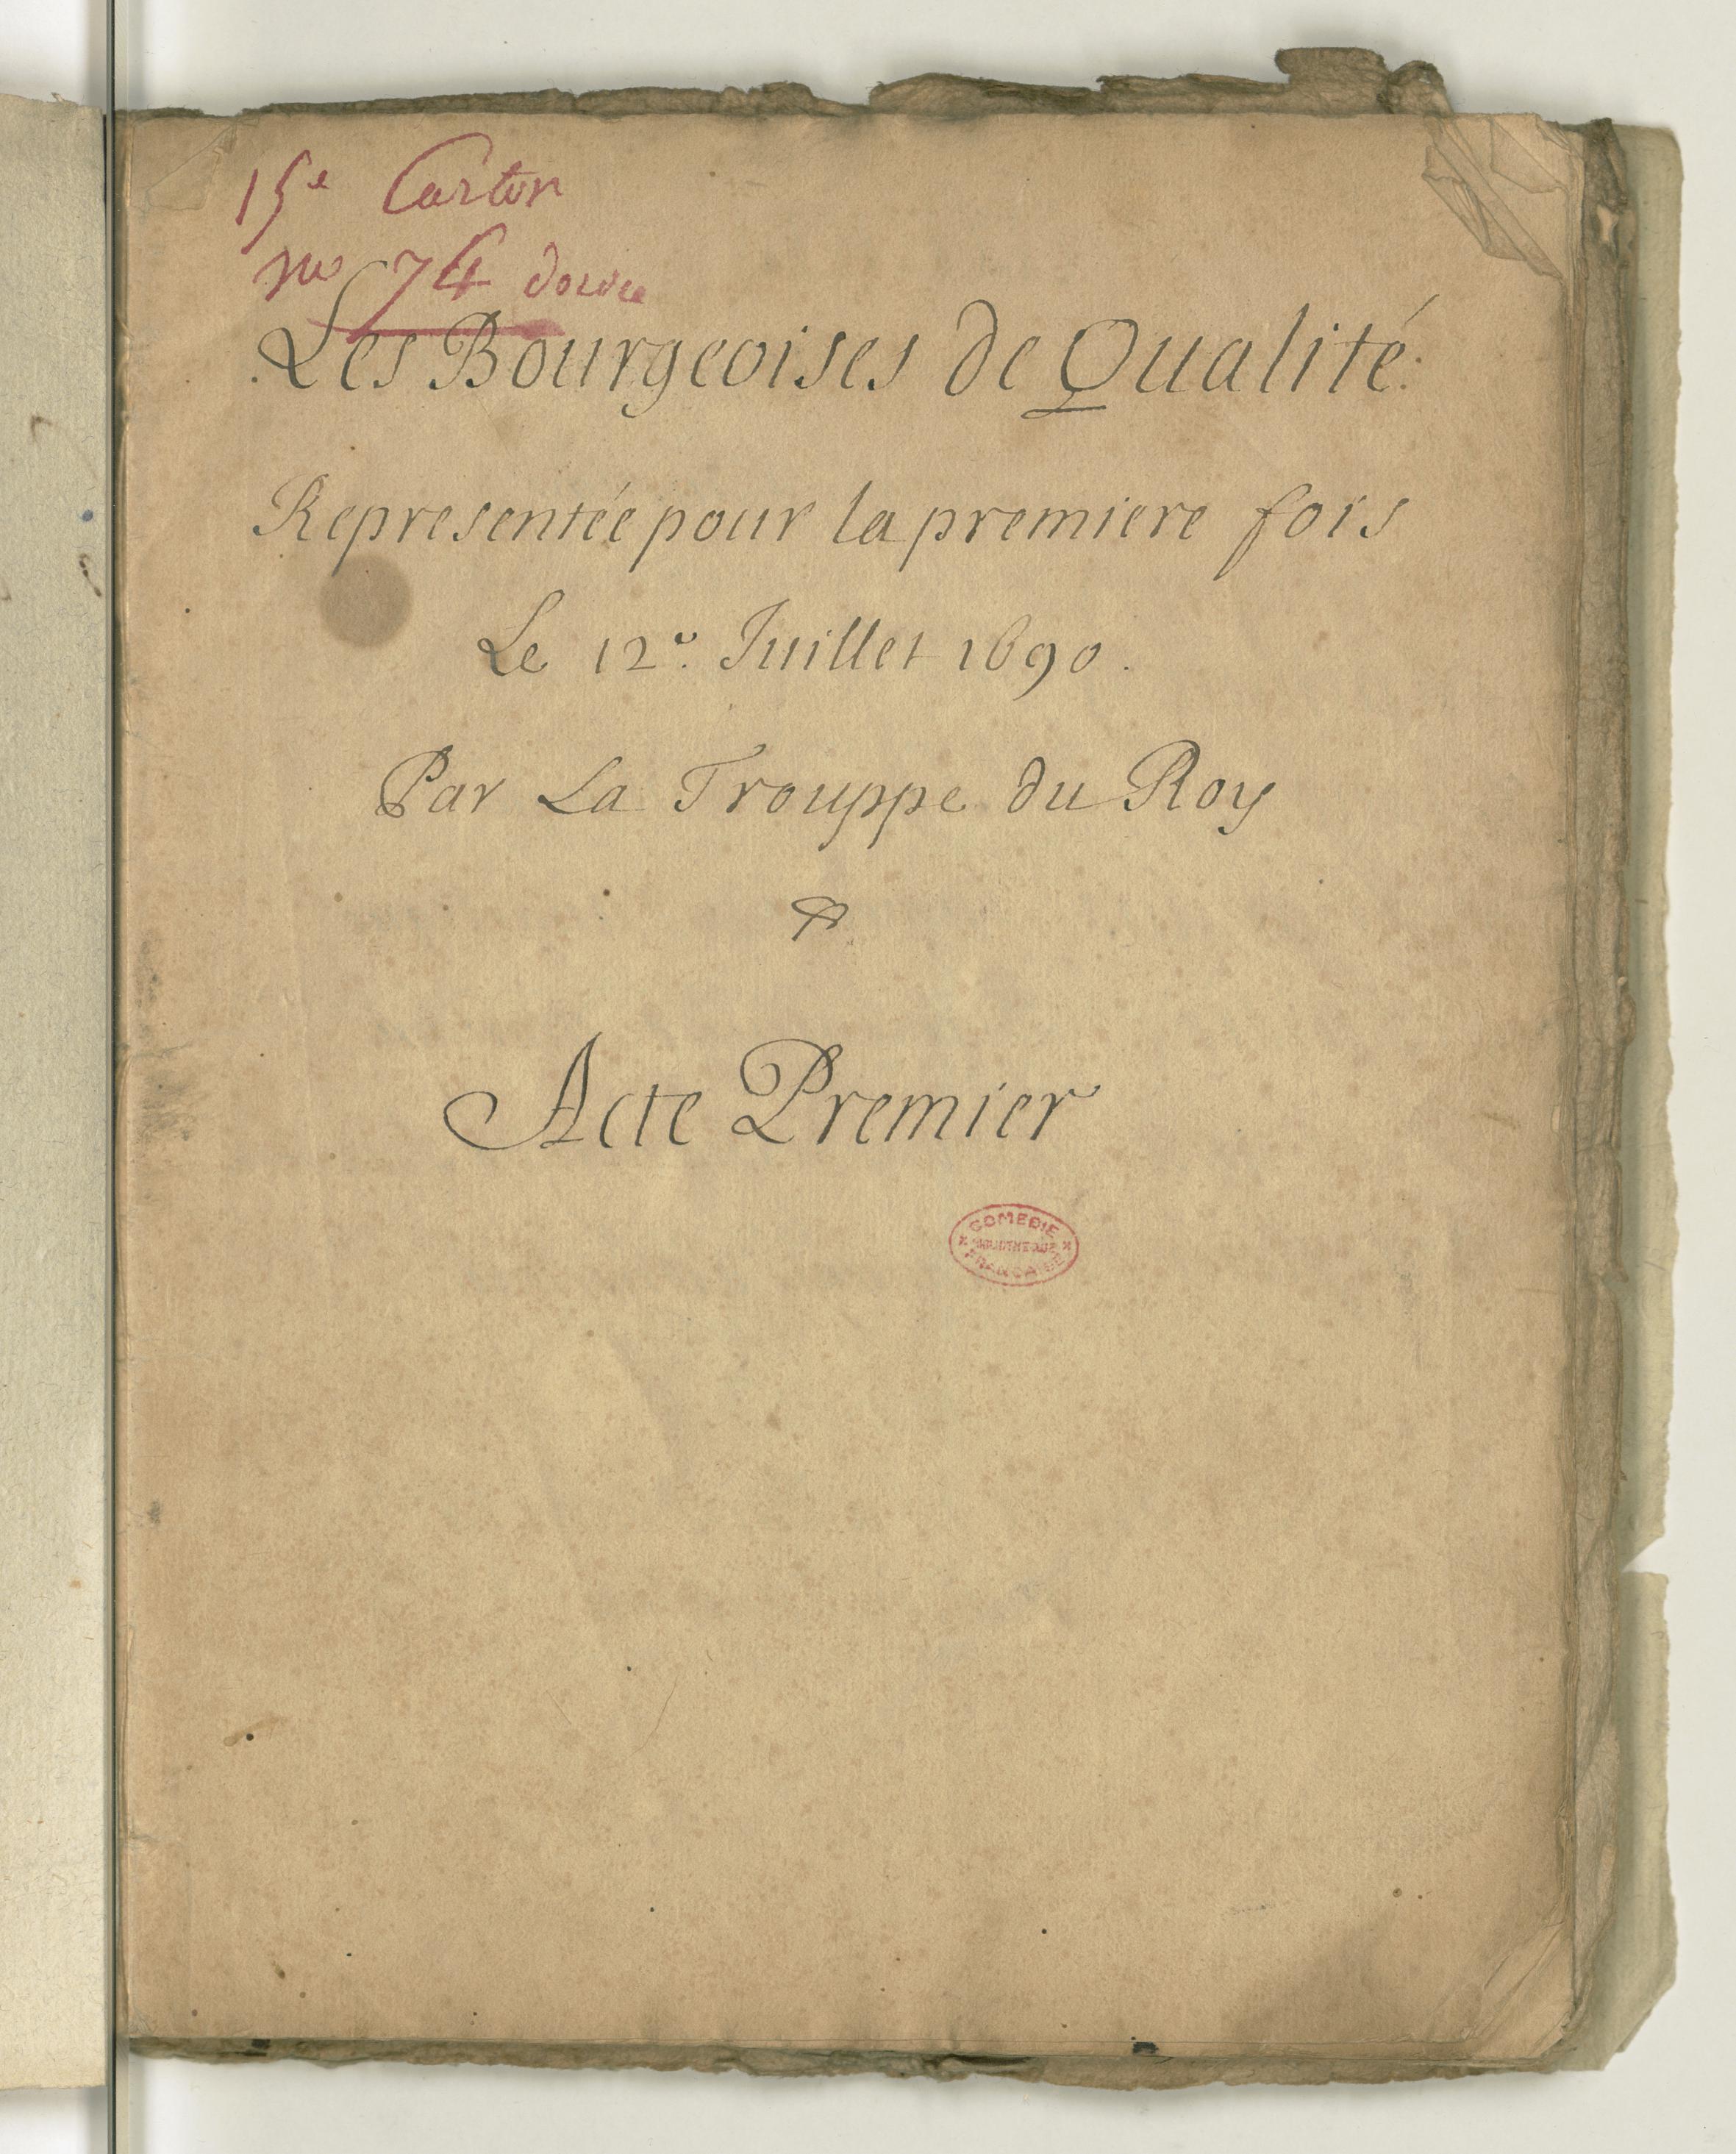 15e Carton
no 74
Les Bourgeoises de Qualité.
Representée pour la premiere fois
Le 12e. Juillet 1690.
Par La Trouppe du Roy
Acte Premier
COMEDIE
BIBLIOTHEQUE
FRANÇAISE